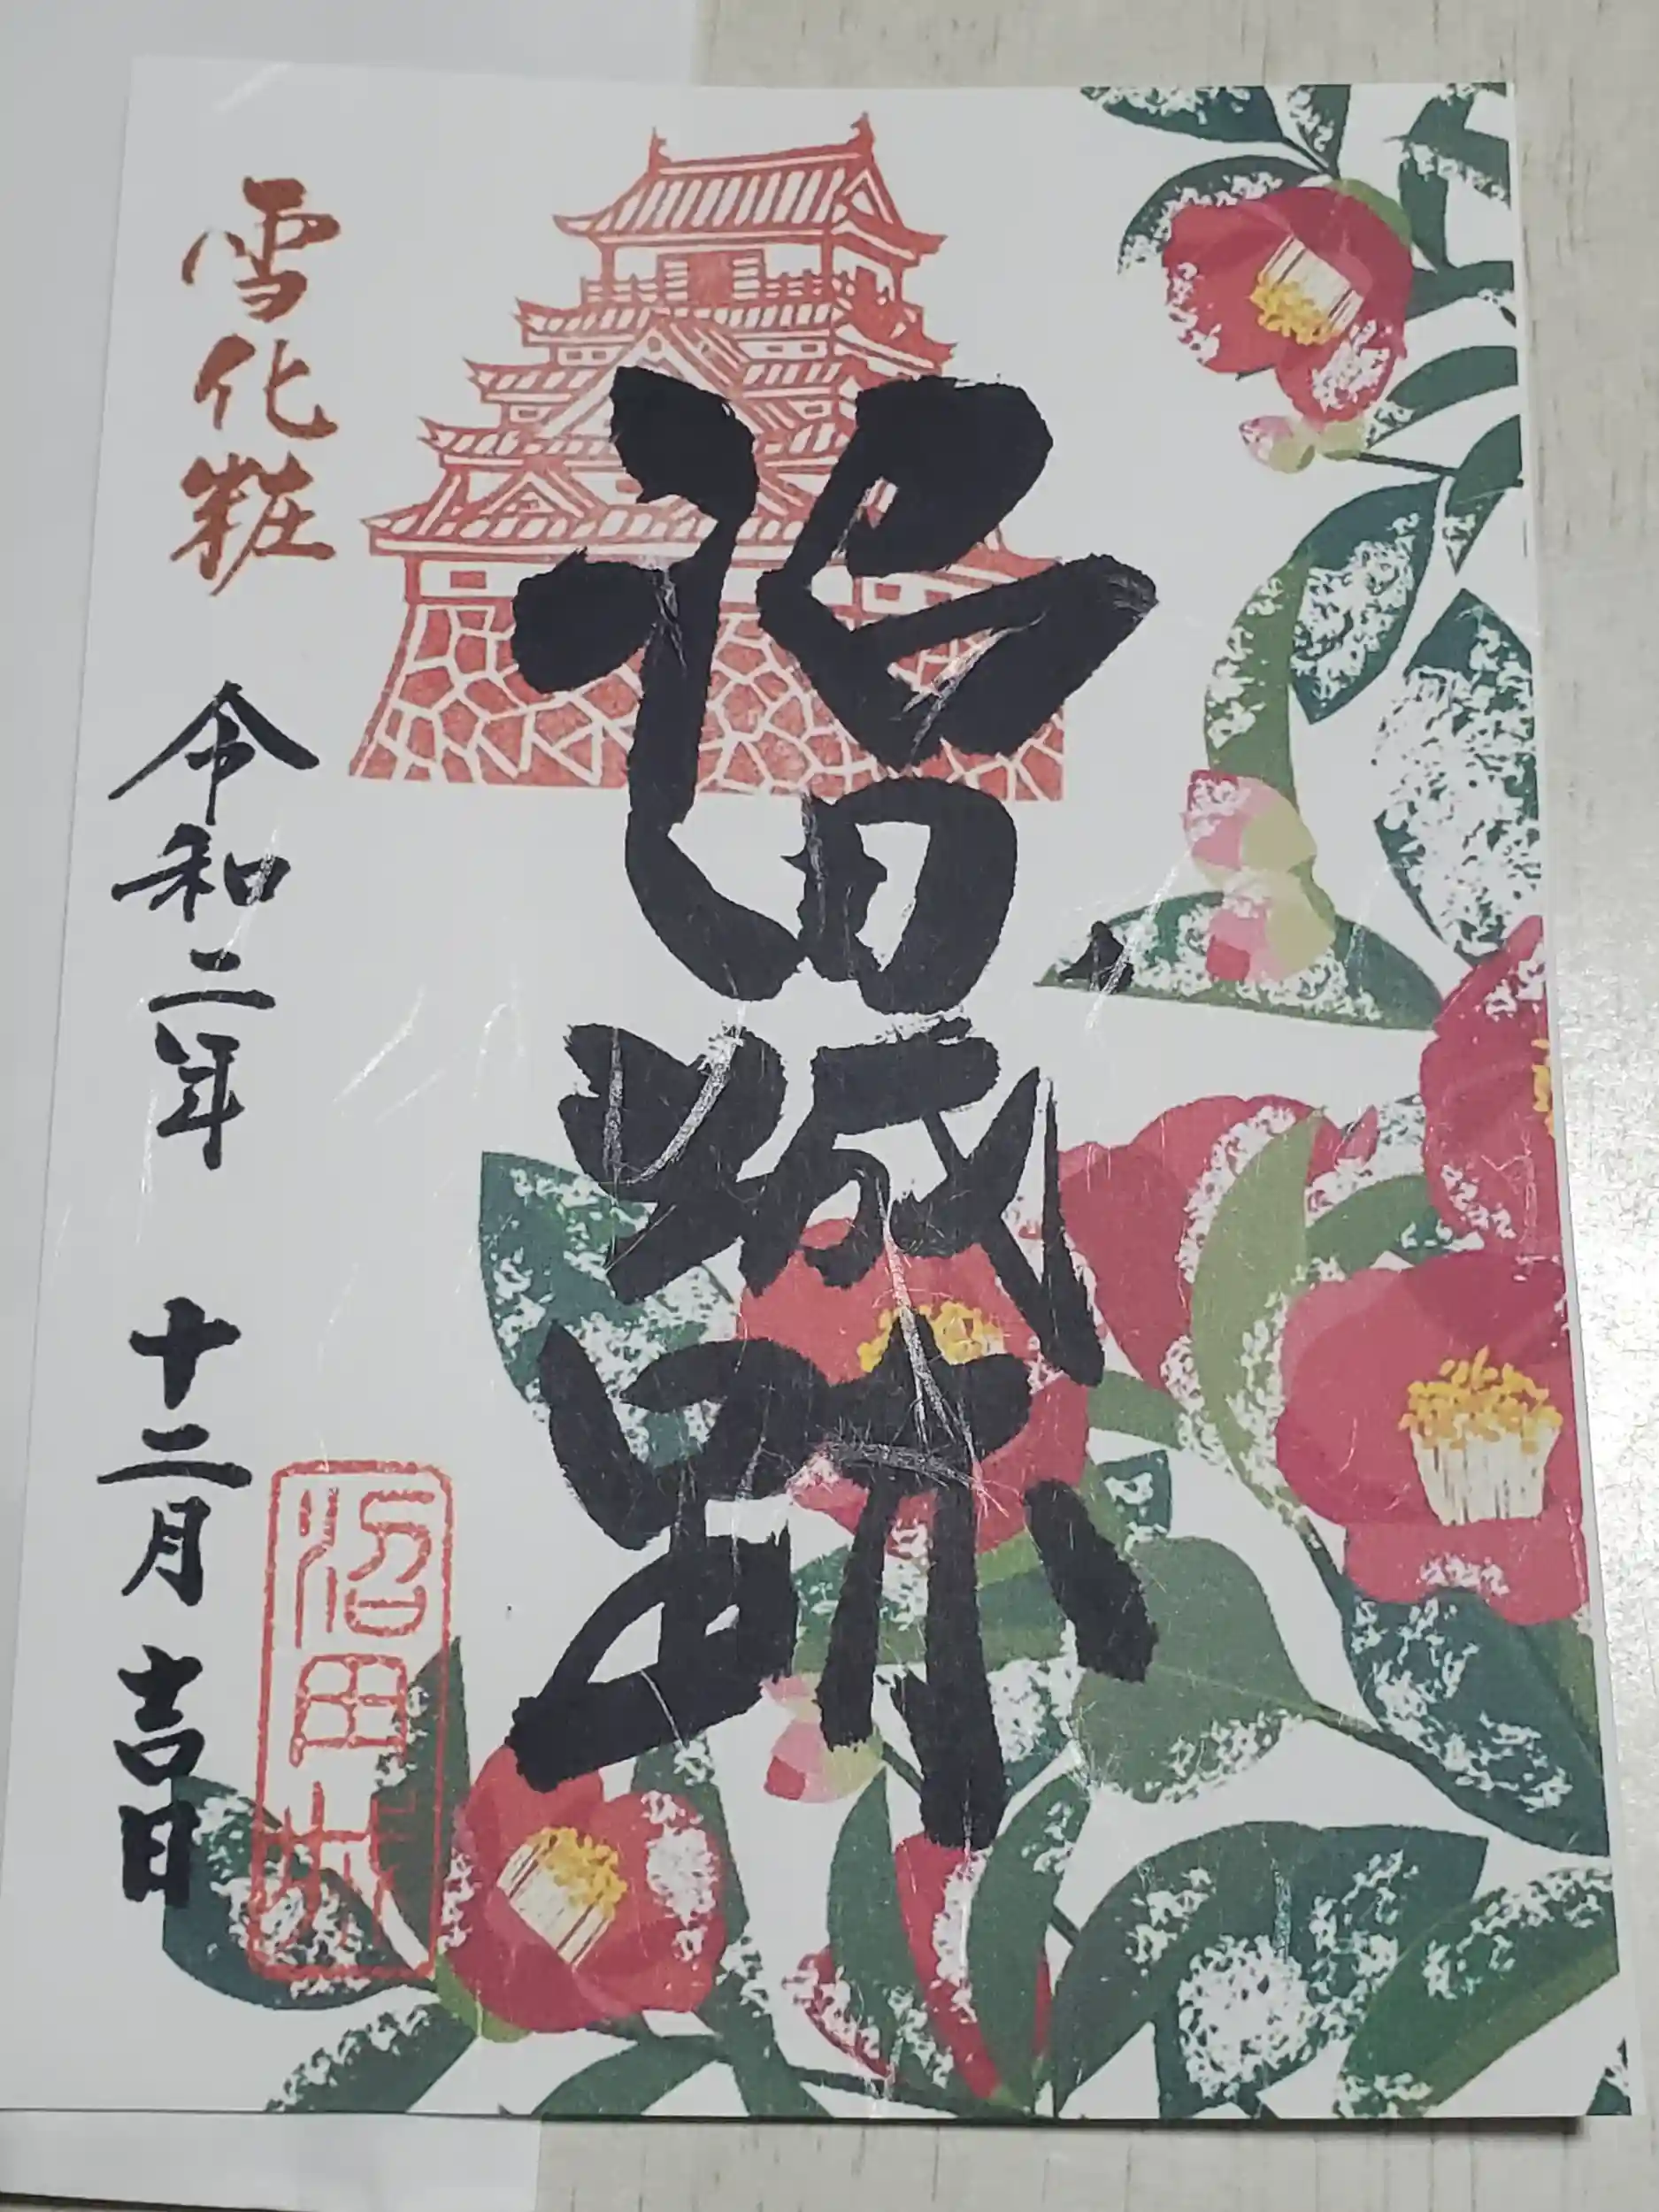 沼田城跡
雪化粧
令和二年 十二月 吉日
沼田城